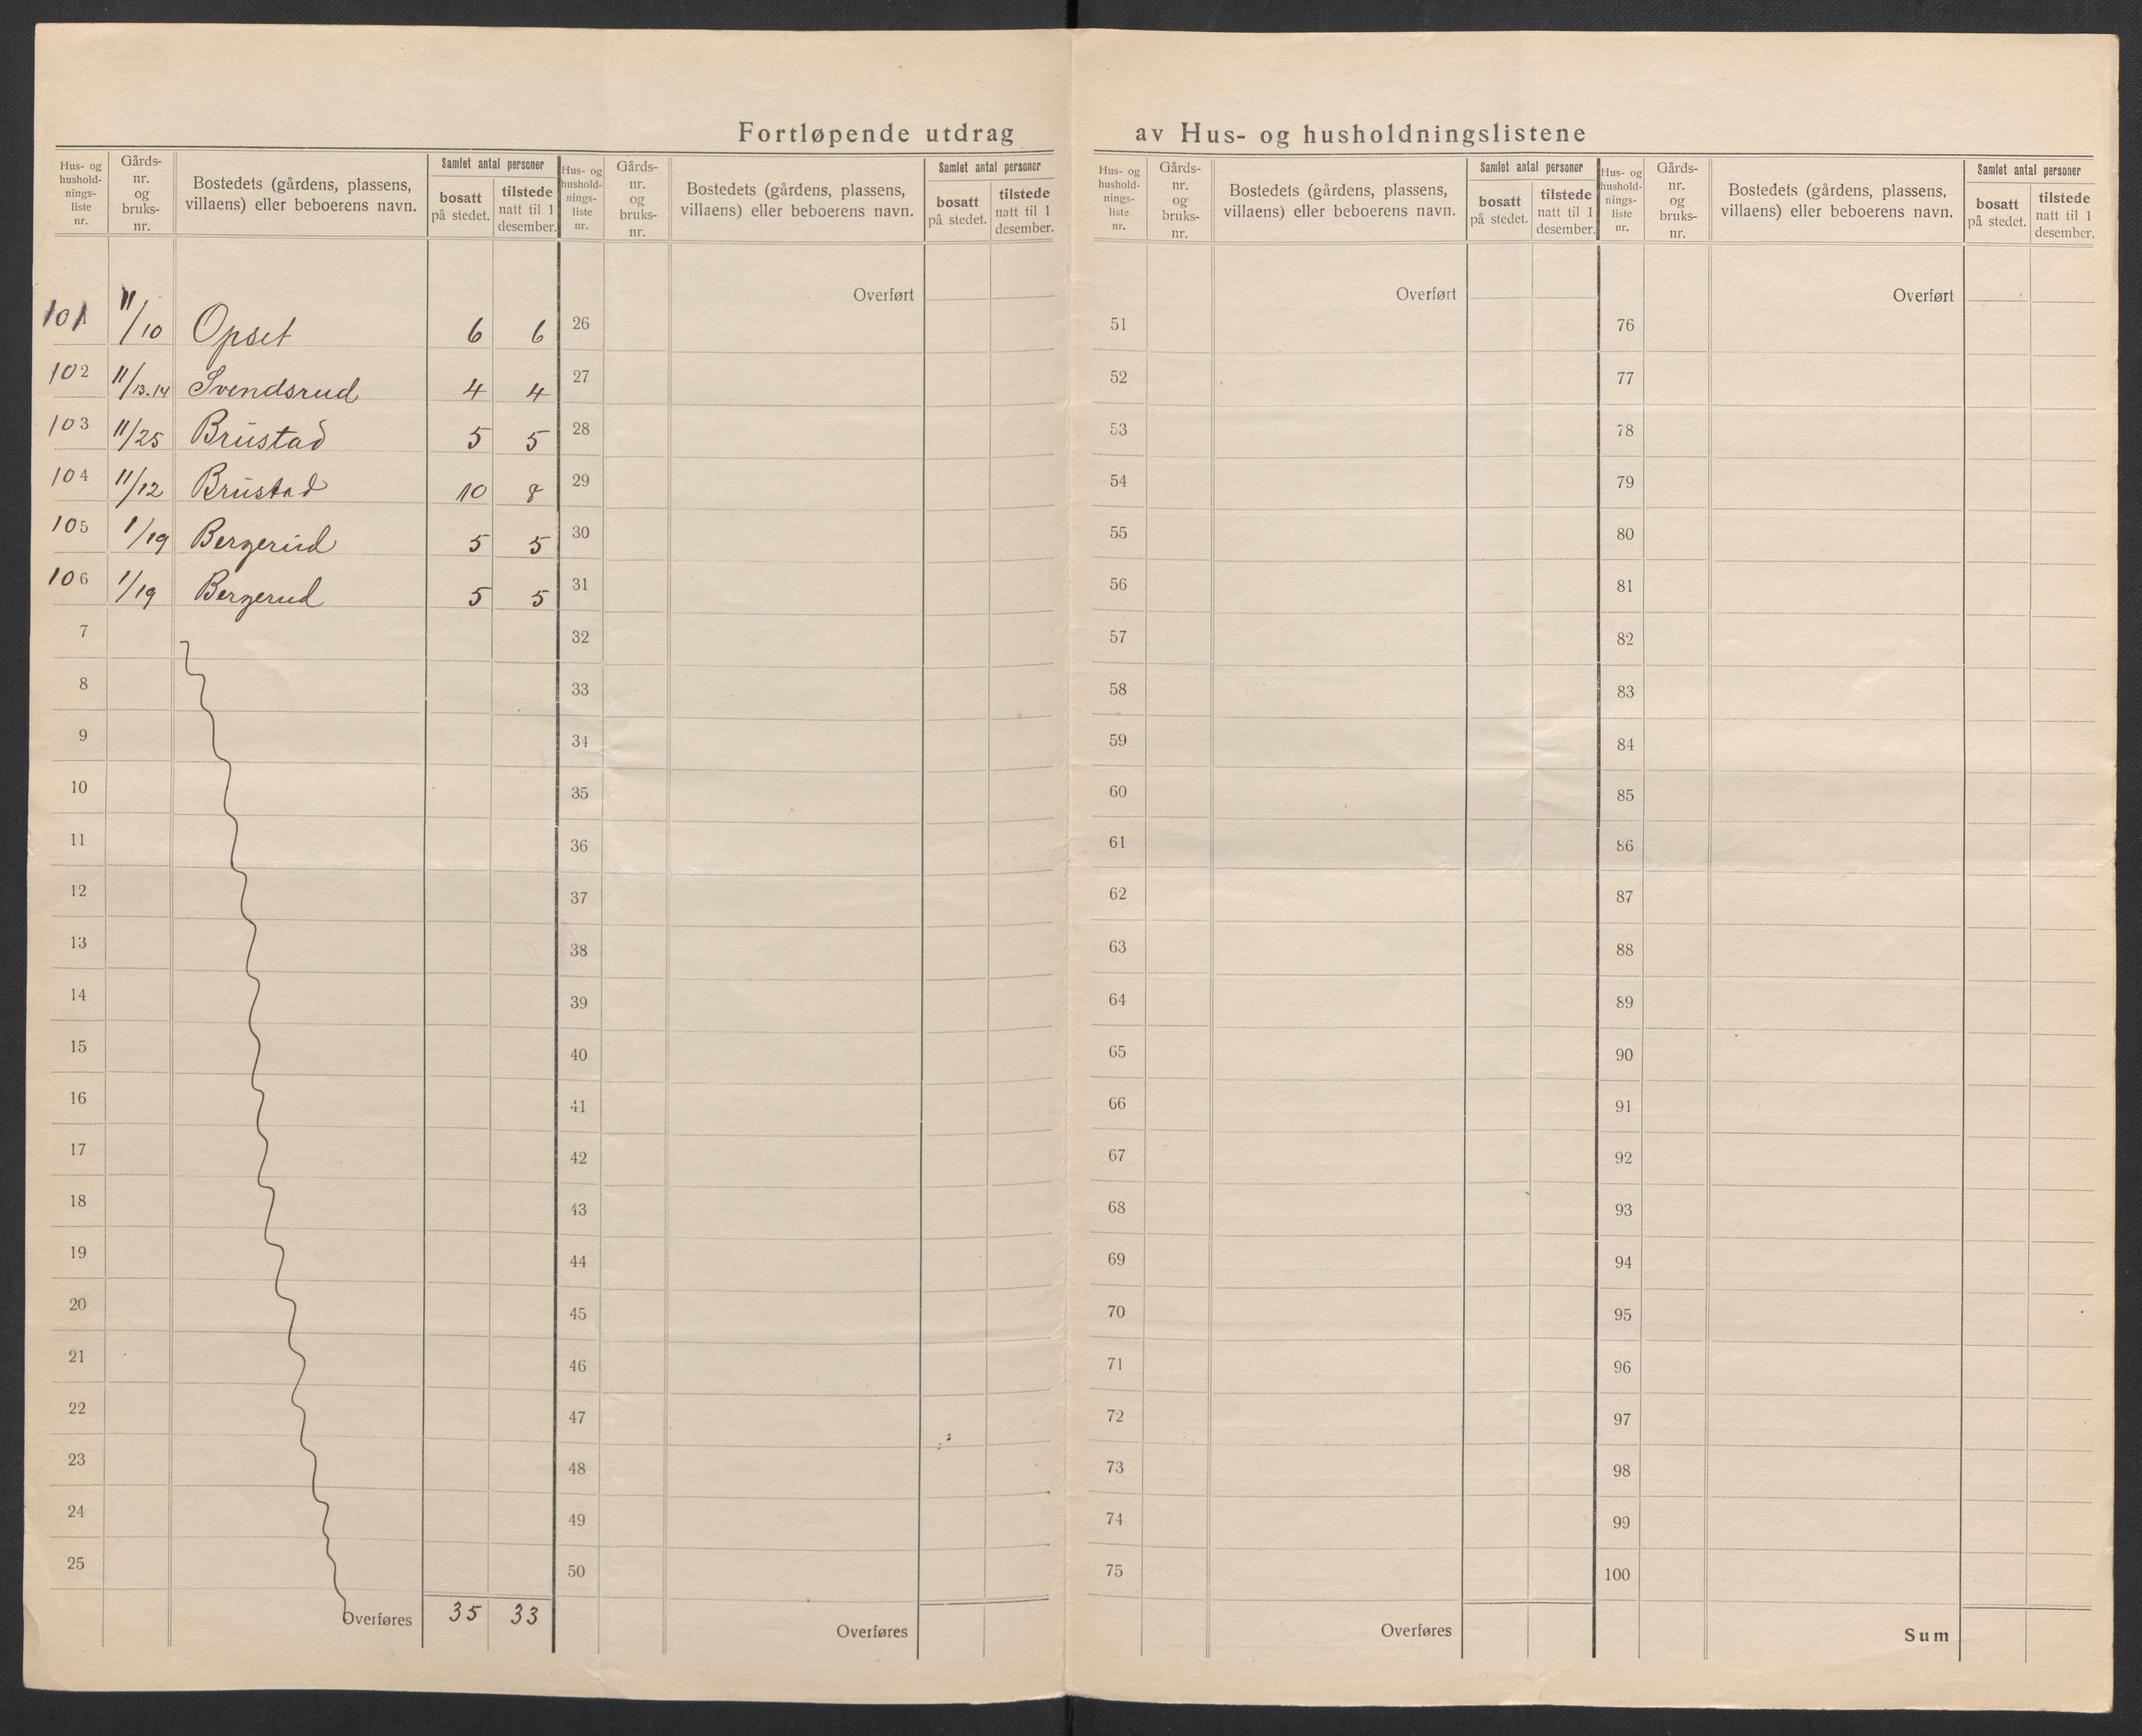 Fortløpende utdrag av Hus- og husholdningslistene
Hus- og
hushold-
nings-
liste
nr.
Gårds-
nr.
og
bruks-
nr.
Bostedets (gårdens, plassens,
villaens) eller beboerens navn.
Samlet antal personer
bosatt
på stedet.
tilstede
natt til 1
desember.
101 11/10 Opset 6 6
102 11/13.14 Svendsrud 4 4
103 11/25 Brustad 5 5
104 11/12 Brustad 10 8
105 1/19 Bergerud 5 5
106 1/19 Bergerud 5 5
7
8
9
10
11
12
13
14
15
16
17
18
19
20
21
22
23
24
25
Overføres 35 33
Hus- og
hushold-
nings-
liste
nr.
Gårds-
nr.
og
bruks-
nr.
Bostedets (gårdens, plassens,
villaens) eller beboerens navn.
Samlet antal personer
bosatt
på stedet.
tilstede
natt til 1
desember.
Overført
26
27
28
29
30
31
32
33
34
35
36
37
38
39
40
41
42
43
44
45
46
47
48
49
50
Overføres
Hus- og
hushold-
nings-
liste
nr.
Gårds-
nr.
og
bruks-
nr.
Bostedets (gårdens, plassens,
villaens) eller beboerens navn.
Samlet antal personer
bosatt
på stedet.
tilstede
natt til 1
desember.
Overført
51
52
53
54
55
56
57
58
59
60
61
62
63
64
65
66
67
68
69
70
71
72
73
74
75
Overføres
Hus- og
hushold-
nings-
liste
nr.
Gårds-
nr.
og
bruks-
nr.
Bostedets (gårdens, plassens,
villaens) eller beboerens navn.
Samlet antal personer
bosatt
på stedet.
tilstede
natt til 1
desember.
Overført
76
77
78
79
80
81
82
83
84
85
86
87
88
89
90
91
92
93
94
95
96
97
98
99
100
Sum